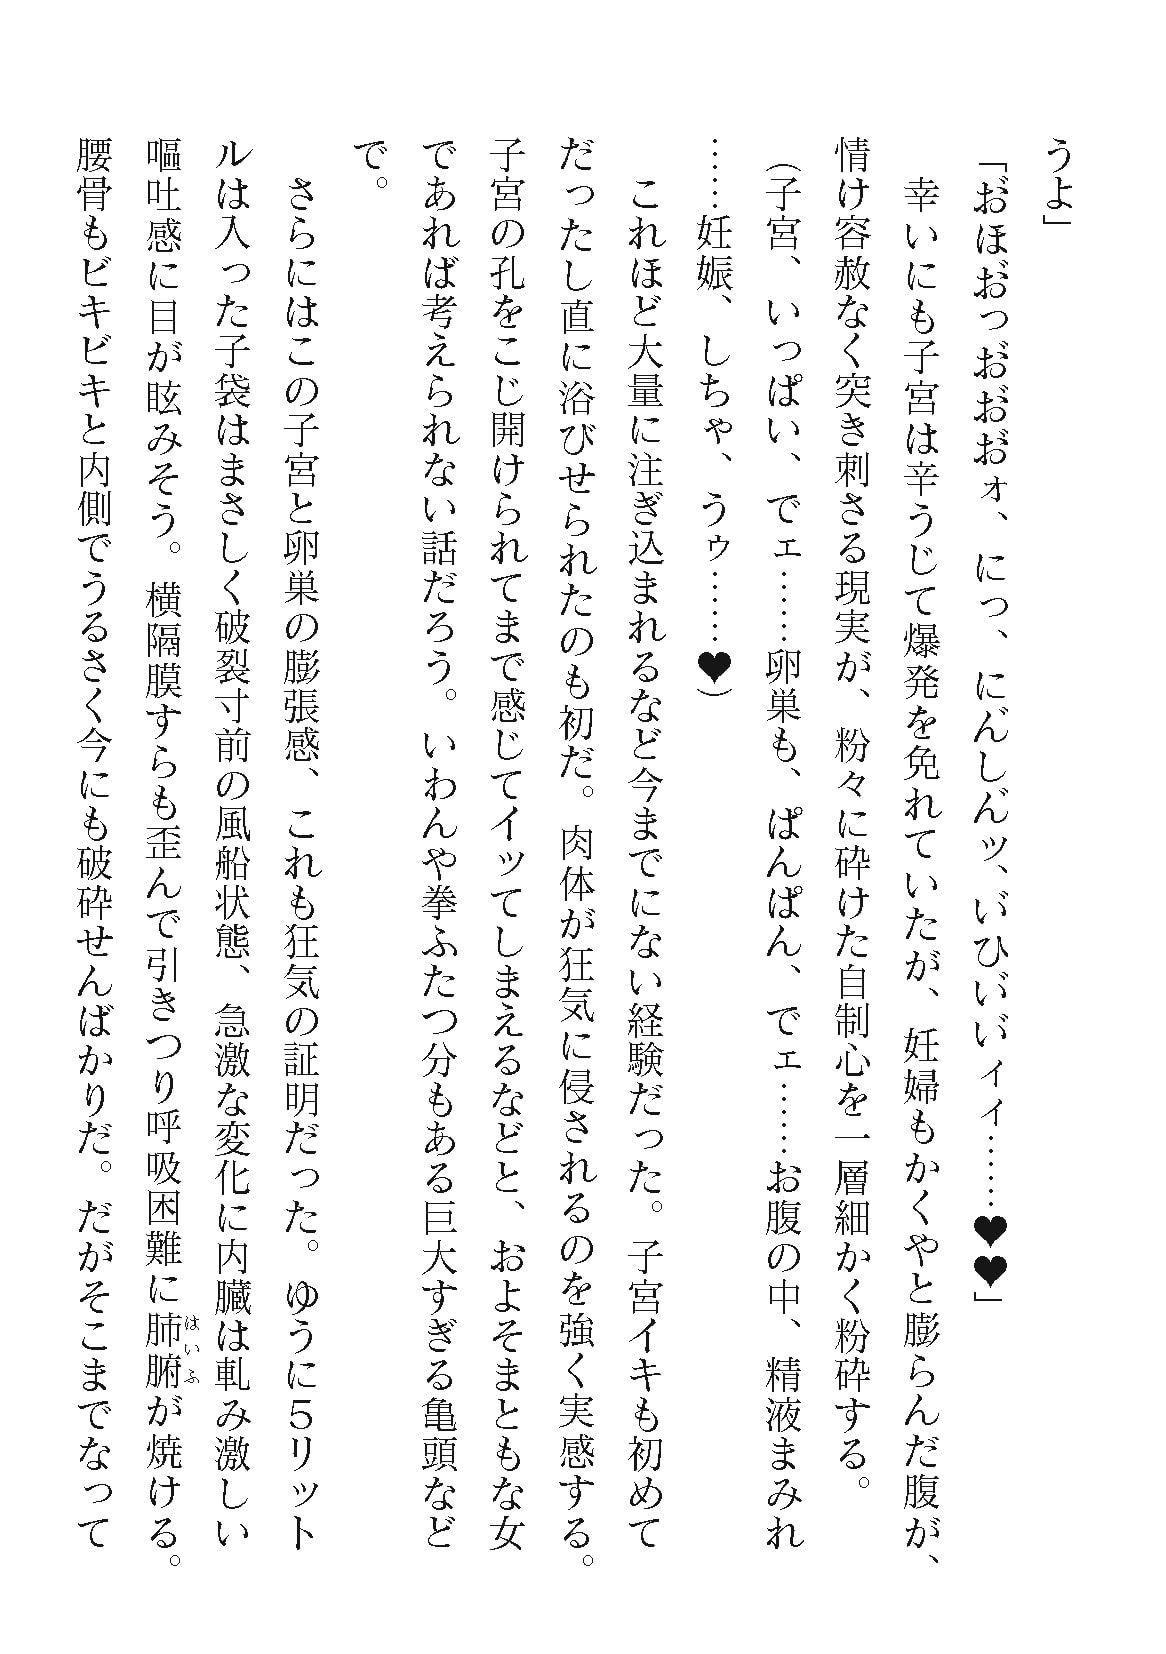 うよ」
「お゙ほお゙っお゙お゙お゙ォ、にっ、にん゙しん゙ッ、い゙ひい゙い゙ィィ……♥♥」
幸いにも子宮は辛うじて爆発を免れていたが、妊婦もかくやと膨らんだ腹が、
情け容赦なく突き刺さる現実が、粉々に砕けた自制心を一層細かく粉砕する。
（子宮、いっぱい、でェ……卵巣も、ぱんぱん、でェ……お腹の中、精液まみれ
……妊娠、しちゃ、うゥ……♥）
これほど大量に注ぎ込まれるなど今までにない経験だった。子宮イキも初めて
だったし直に浴びせられたのも初だ。肉体が狂気に侵されるのを強く実感する。
子宮の孔をこじ開けられてまで感じてイッてしまえるなどと、およそまともな女
であれば考えられない話だろう。いわんや拳ふたつ分もある巨大すぎる亀頭など
で。
さらにはこの子宮と卵巣の膨張感、これも狂気の証明だった。ゆうに５リット
ルは入った子袋はまさしく破裂寸前の風船状態、急激な変化に内臓は軋み激しい
嘔吐感に目が眩みそう。横隔膜すらも歪んで引きつり呼吸困難に肺腑はいふが焼ける。
腰骨もビキビキと内側でうるさく今にも破砕せんばかりだ。だがそこまでなって